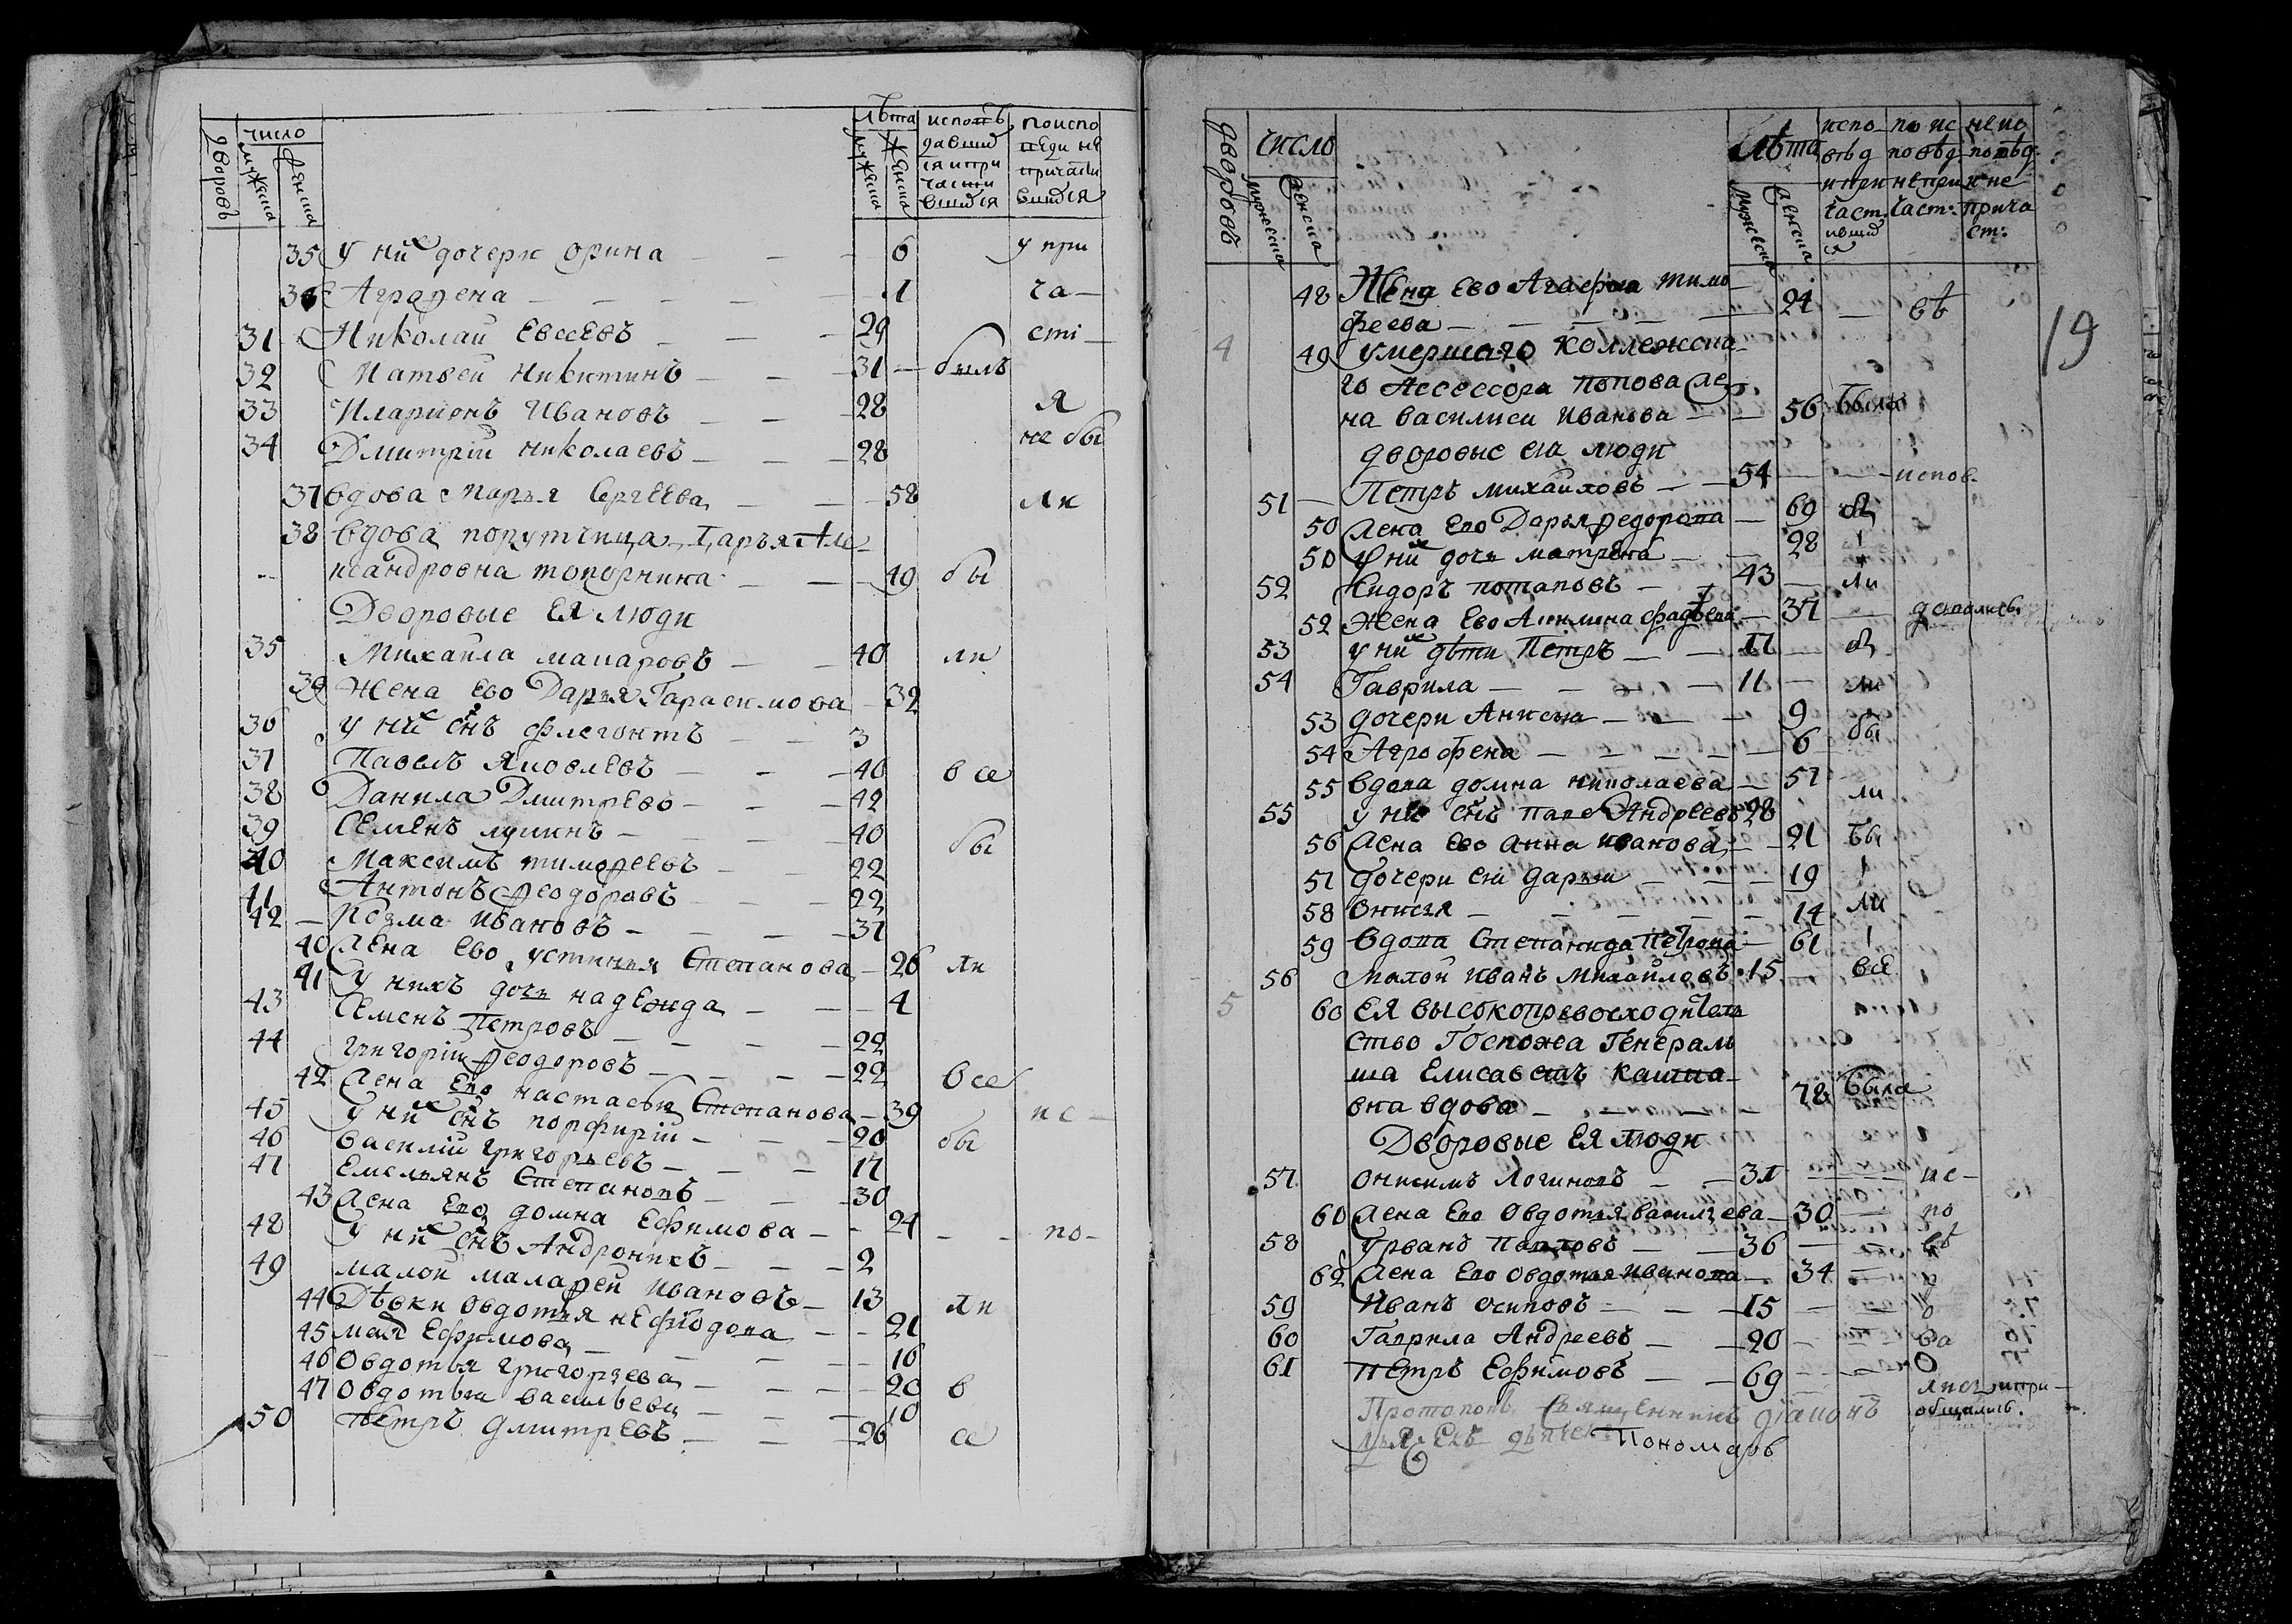 дворовъ число мужеска женска лѣта мужеска женска исповѣ
давшия
ся и при
части
вшихся поиспо
веди не
причасти
вшихся
35 у них дочери Орина — — 6 у при
36 Аграфена — — — — 1 ча—
31 Николай Евсеевъ — — 29 сті—
32 Матвей Никитинъ — — 31 — былъ
33 Иларионъ Ивановъ — — 28 я
34 Дмитрій Николаевъ — — 28 не бы
37 вдова Марья Сергеева — 58 ли
38 вдова порутчица Дарья Але
ксандровна топорнина — — 49 бы
Дворовые Ея люди
35 Михаила макаровъ — — 40 ли
39 Жена ево Дарья Гарасимова — 32
36 у них снъ флегонтъ — — 3
37 Павелъ Яковлевъ — — — 40 все
38 Данила Дмитрево — — — 42
39 Семенъ лукинъ — — — 40 бы
40 Максимъ тимофеевъ — — 22
41 Антонъ Феодоровъ — — — 22
42 — Козма Ивановъ — — — — 37
40 жена ево устинья Степанова — 26 ли
41 у нихъ дочь надежда — — 4
43 Семенъ Петровъ — — — — 22
44 григорій феодоровъ — — — — 22 все
42 жена Ево настасья Степанова — 39 ис—
45 у них снъ порфирій — — — 20 бы
46 василій григорьевъ — — — 17
47 Емельянъ Степановъ — — — 30
43 жена Ево домна Ефимова — — 24 — — по—
48 у них снъ Андроникъ — — — 2
49 малой маларфей ивановъ — 13 ли
44 Дѣвки Овдотья нефиодова — — 21
45 Ефимова — — — — — 16
46 Овдотья григорьева — — — 20 в
47 Овдотья васильева — — — 10
50 петръ дмитревъ — — — 26 се
19
дворовъ число мужеска женска Лѣта мужеска женска испо—
вѣд
и при
част.
ившия
ся по ис
по вѣд
не при
част: не ис
повѣд
и не
прича
ст:
48 Жена ево Агафья тимо
феева — — — — — 24 — вѣ
4 49 умершаго коллежска
го Ассессора попова же
на василиса иванова — — 56 была
дворовые ея люди
51 — Петръ михайловъ — — 54 — — испов—
50 жена Ево Дарья федорова — 69 бы
50 у них дочь матрена — — 28
52 Сидоръ потаповъ — — 43 — ли
52 жена Ево Акилина фадѣева — 37 —
53 у них дѣти Петръ — — 17 — бы
54 Гаврила — — — — 11 — ли
53 дочери Анисья — — — 9
54 Агрофена — — — — — 6 бы
55 вдова домна николаева — 57 ли
55 у нее снъ паве Андреевъ 28
56 жена ево анна иванова — — 21 бы
57 дочери ея дарья — — — 19
58 Онисья — — — — — 14 ли
59 вдова Степанида Петрова — 61
56 малой иванъ михайловъ 15 — все
5 60 Ея высокопревосходитель
ство Госпожа Генераль
ша Елисаветъ
вна вдова — — — — 78 была
Дворовые Ея люди
57. онисимъ Логиновъ — — 31 — — ис—
60 жена Ево Овдотья васильева — 30 — по
58 Урванъ Павловъ — — 36 — вѣ
62 жена Ево Овдотья иванова — 34 —
59 Иванъ осиповъ — — — 15 —
60 Гаврила Андреевъ — — 20 — ва
61 петръ Ефимовъ — — 69 — —
лись и при—
общались.
Протопопъ священникъ діаконъ
Пономарь